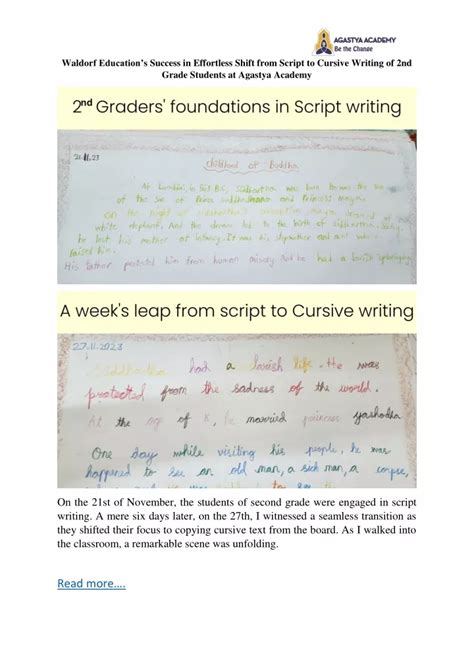 AGASTYA ACADEMY
Be the Change
Waldorf Education's Success in Effortless Shift from Script to Cursive Writing of 2nd
Grade Students at Agastya Academy
2nd Graders' foundations in Script writing
21.11.23
childhood of Buddha
At Lumbini, in 563 B.C, Siddhartha was born he was the son
of the of Prince and Princess maya.
on the night of siddhartha's conception maya dreamed of
white elephant. And the dream led to the birth of siddhartha.
he lost his mother at infancy. It was his stepmother and aunt who
raised him.
His father protected him from human misery and he had a lavish
A week's leap from script to Cursive writing
27.11.2023
Siddhartha had a lavish life. He was
protected from the sadness of the world.
At the age of he married princess yashodha
One day while visiting his people, he was
happened to see an old man, a sick man, a corpse,
to see the
On the 21st of November, the students of second grade were engaged in script
writing. A mere six days later, on the 27th, I witnessed a seamless transition as
they shifted their focus to copying cursive text from the board. As I walked into
the classroom, a remarkable scene was unfolding.
Read more....